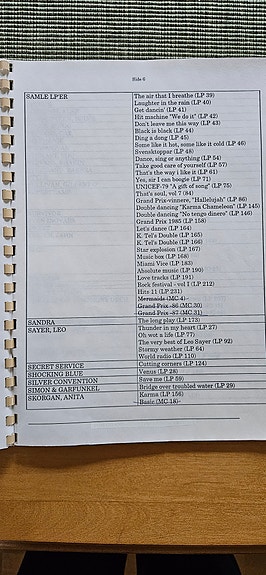 Side 6
SAMLE LP'ER The air that I breathe (LP 39)
Laughter in the rain (LP 40)
Get dancin' (LP 41)
Hit machine "We do it" (LP 42)
Don't leave me this way (LP 43)
Black is black (LP 44)
Ding a dong (LP 45)
Some like it hot, some like it cold (LP 46)
Svensktoppar (LP 48)
Dance, sing or anything (LP 54)
Take good care of yourself (LP 57)
That's the way i like it (LP 61)
Yes, sir I can boogie (LP 71)
UNICEF-79 "A gift of song" (LP 75)
That's soul, vol 7 (LP 84)
Grand Prix-vinnere, "Hallelujah" (LP 86)
Double dancing "Karma Chameleon" (LP 145)
Double dancing "No tengo dinero" (LP 146)
Grand Prix 1985 (LP 158)
Let's dance (LP 164)
K. Tel's Double (LP 165)
K. Tel's Double (LP 166)
Star explosion (LP 167)
Music box (LP 168)
Miami Vice (LP 183)
Absolute music (LP 190)
Love tracks (LP 191)
Rock festival - vol I (LP 212)
Hits 11 (LP 231)
Mermaids (MC 4)
Grand Prix -86 (MC 30)
Grand Prix -87 (MC 31)
SANDRA The long play (LP 173)
SAYER, LEO Thunder in my heart (LP 27)
Oh wot a life (LP 77)
The very best of Leo Sayer (LP 92)
Stormy weather (LP 64)
World radio (LP 110)
SECRET SERVICE Cutting corners (LP 124)
SHOCKING BLUE Venus (LP 28)
SILVER CONVENTION Save me (LP 59)
SIMON & GARFUNKEL Bridge over troubled water (LP 29)
SKORGAN, ANITA Karma (LP 156)
Basic (MC 18)